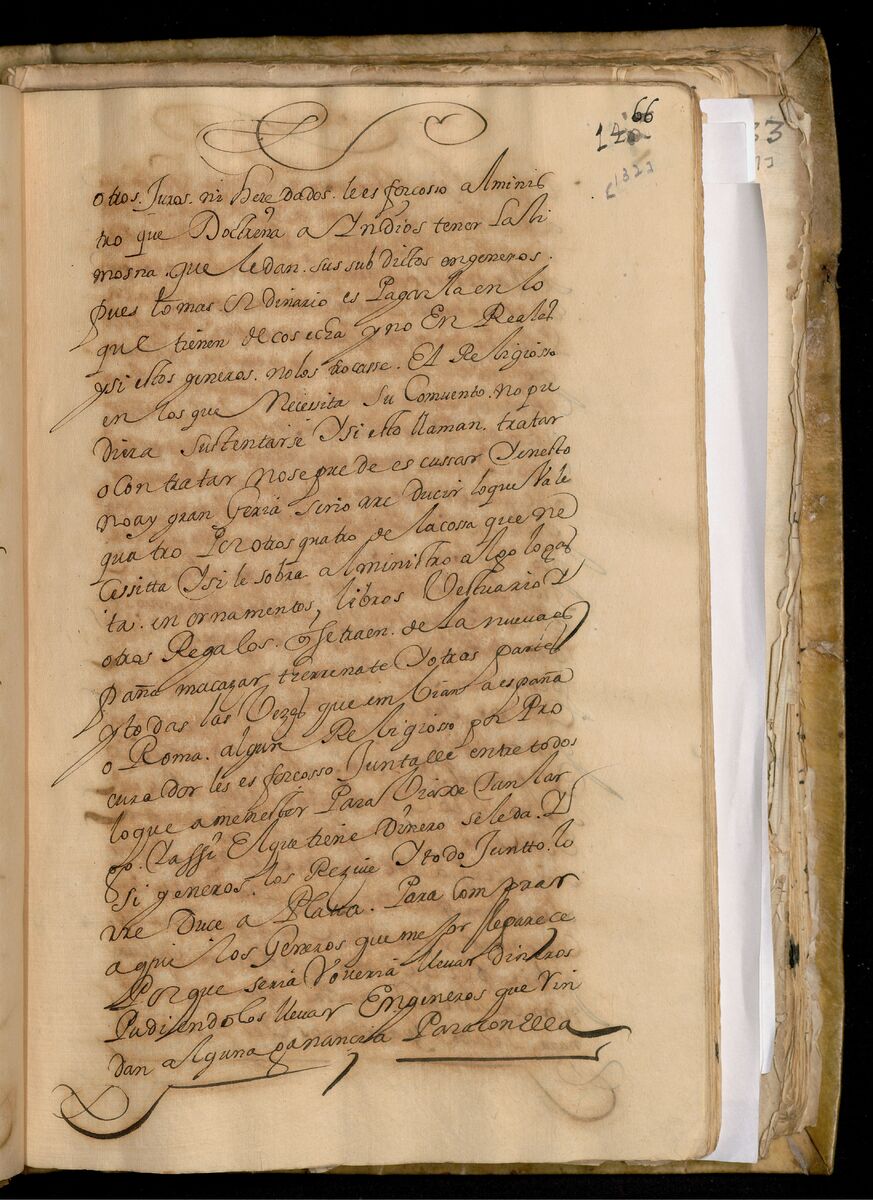 66
132
otros. Juros. ni heredados. le es forcosso al minis
tro que Doctrina a Yndios tener La li
mosna. que le dan. sus subdictos en generos.
pues lo mas. ordinario es Pagarla en lo
que tienen de cosecha y no En Reales
y si estos generos. no los trocasse. El Religiosso
en los que Necessita su Comvento. no pu
diera sustentarse Y si esto llaman. tratar
o Contratar no se puede escussar Y en esto
no ay gran Geria sino rre ducir lo que Vale
quatro Por otros quatro de la cossa que ne
cessitta Y si le sobra al ministro algo lo gas
ta. en ornamentos, libros Vestuario Y
otros Regalos. que se traen. de la nueva es
paña macazar terrenate Y otras partes
y todas las Vezes que imbian a españa
o Roma. algun Religiosso por Pro
curador les es forcosso Juntalle entre todos
lo que a menester Para Viaxe tan lar
go. Y assi El que tiene Dinero se le da. Y
si generos. los Reziue Y todo Juntto. lo
rre Duce a Platta. Para comprar
aqui los Generos que mejor lleparece
Por que seria boveria llevar Dineros
Pudiendolos llevar En generos que rin
dan alguna ganancia Para con Ella